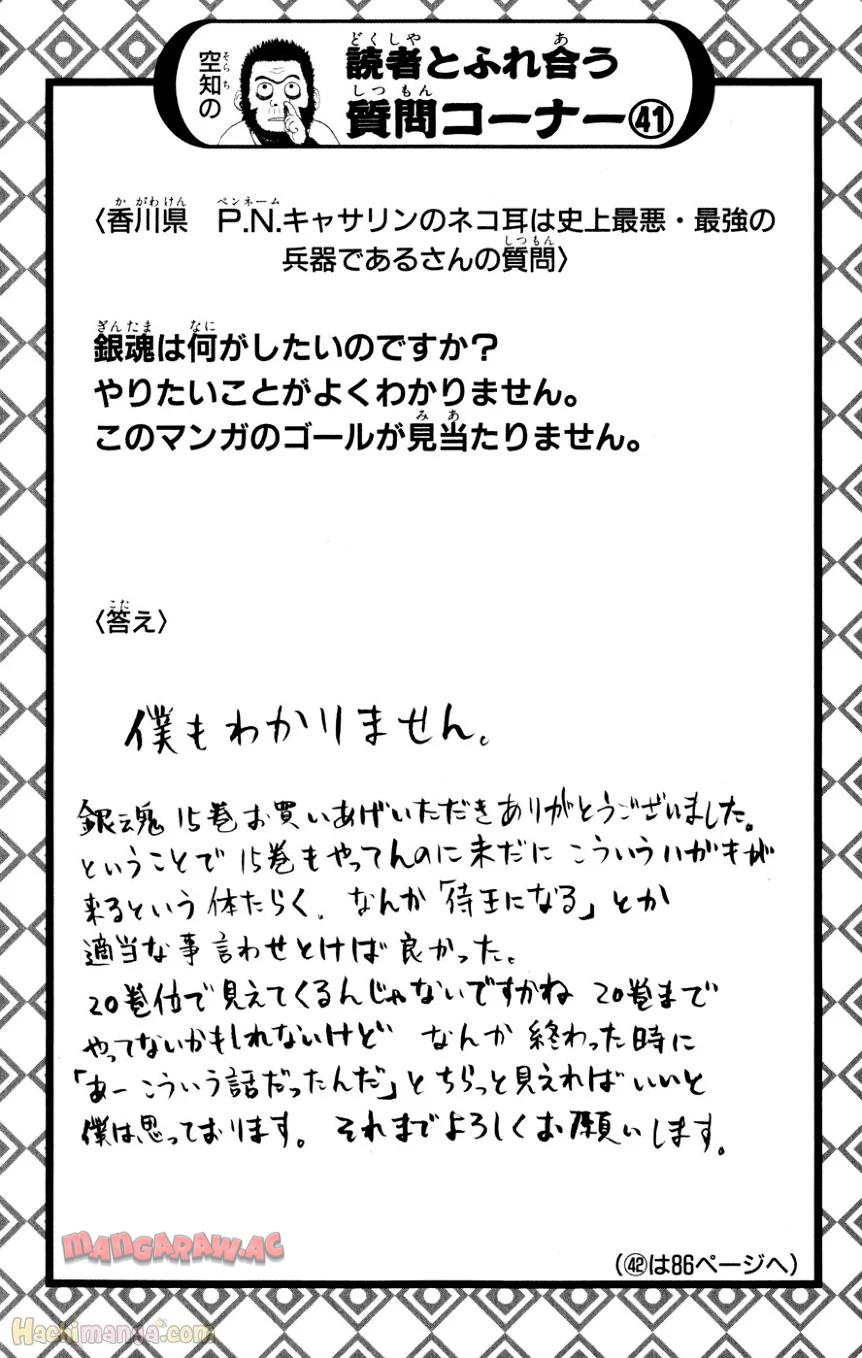 空知の
読者とふれ合う
質問コーナー㊶
〈香川県　P.N.キャサリンのネコ耳は史上最悪・最強の
兵器であるさんの質問〉
銀魂は何がしたいのですか?
やりたいことがよくわかりません。
このマンガのゴールが見当たりません。
〈答え〉
僕もわかりません。
銀魂15巻お買いあげいただきありがとうございました。
ということで15巻もやってんのに未だにこういうハガキが
来るという体たらく。なんか「侍王になる」とか
適当な事言わせとけば良かった。
20巻位で見えてくるんじゃないですかね 20巻まで
やってないかもしれないけど なんか終わった時に
「あーこういう話だったんだ」とちらっと見えればいいと
僕は思っております。それまでよろしくお願いします。
MANGARAW.AC
(㊷は86ページへ)
Hachimanya.com